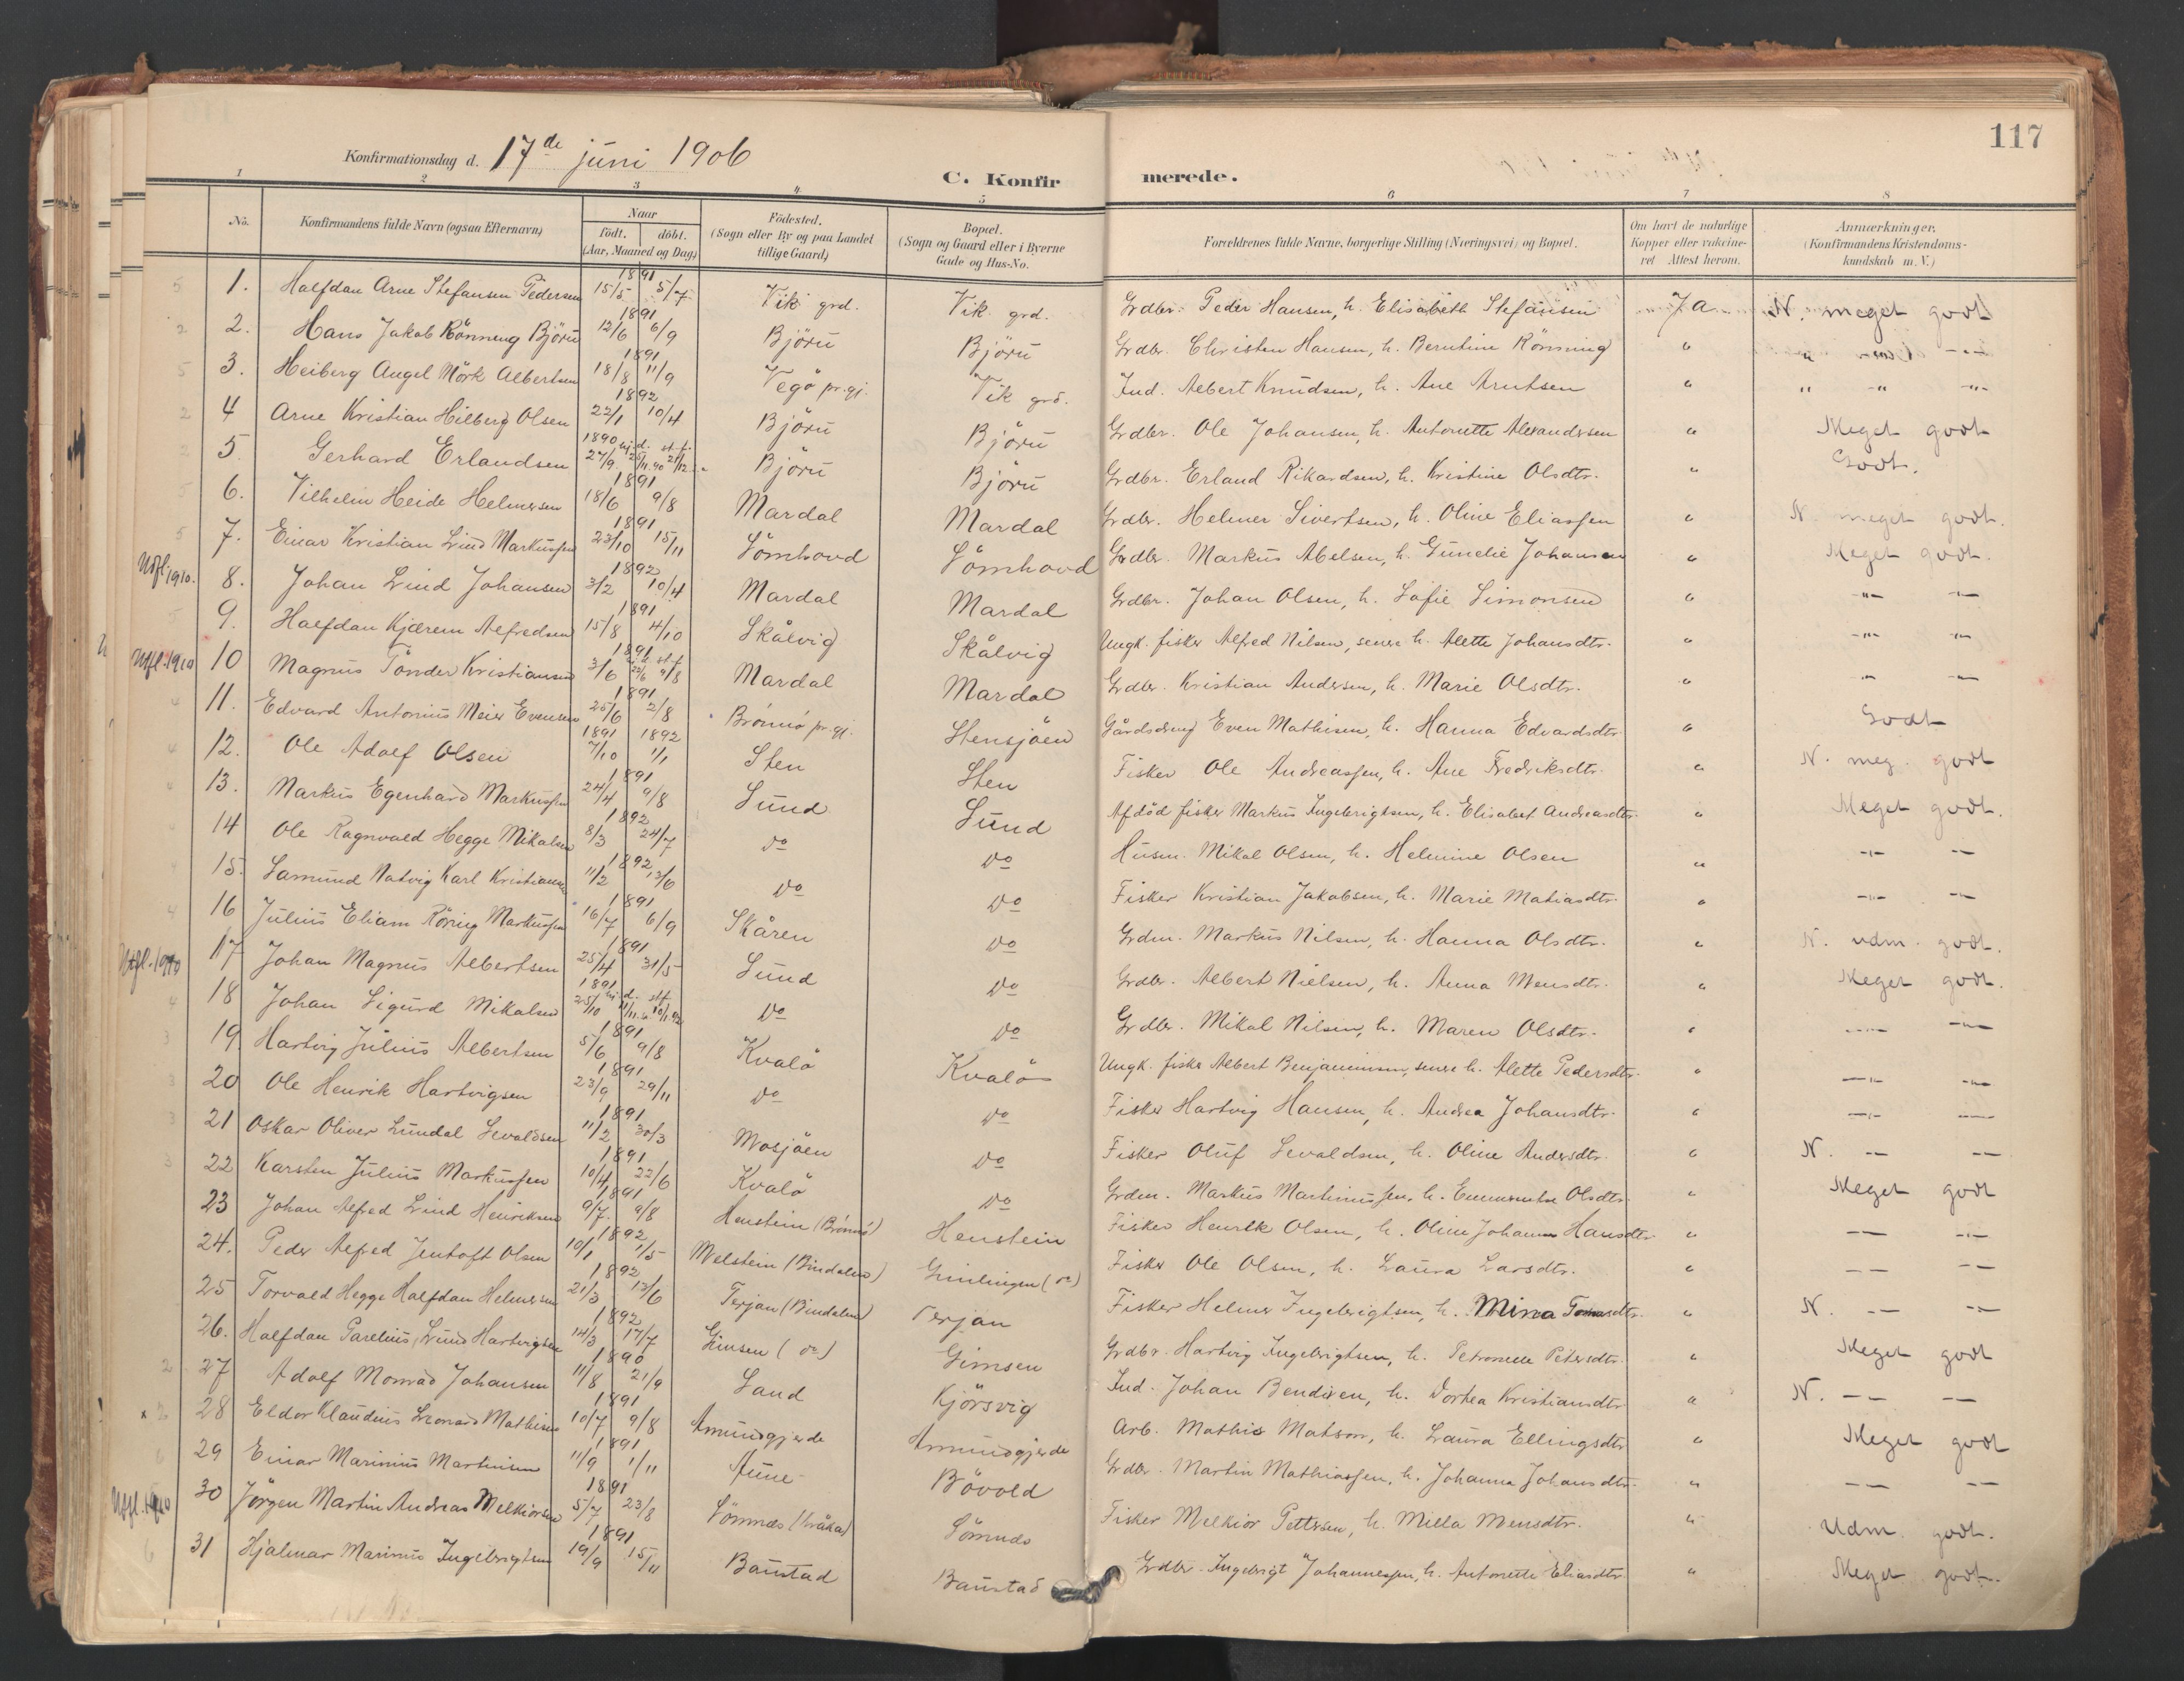 117
Konfirmationsdag d. 17de juni 1906
C. Konfirmerede.
1 2 3 4 5 6 7 8
No. Konfirmandens fulde Navn (ogsaa Efternavn) Naar födt. döbt. (Aar, Maaned og Dag.) Födested. (Sogn eller By og paa Landet tillige Gaard) Bopæl. (Sogn og Gaard eller i Byerne Gade og Hus-No. Forældrenes fulde Navne, borgerlige Stilling (Næringsvei) og Bopæl. Om havt de naturlige Kopper eller vaccineret Attest herom. Anmærkninger. (Konfirmandens Kristendomskundskab m. V.)
1. Halfdan Arne Stefansen Pedersen 1891 15/5 5/7 Vik grd. Vik grd. Grdbr. Peder Hansen, h. Elisabeth Stefansen Ja N. meget godt
2. Hans Jakob Rönning Björu 1891 12/6 6/9 Björu Björu Grdbr. Christen Hansen, h. Berntine Rönning " " " "
3. Heiberg Angel Mörk Albertsen 1891 18/8 11/9 Vegö pr.gj. Vik grd. Ind. Albert Knudsen, h. Ane Arntsen " " " "
4 Arne Kristian Hilberg Olsen 1892 22/1 10/4 Björu Björu Grdbr. Ole Johansen, h. Antonette Alexandersen " Meget godt
5. Gerhard Erlandsen 1890 27/9 hj.d. 25/11.90 st.f. 21/12 Björu Björu Grdbr. Erland Rikardsen, h. Kristine Olsdtr. " Godt.
6. Vilhelm Heide Helmersen 1891 18/6 9/8 Mardal Mardal Grdbr. Helmer Sivertsen, h. Oline Eliassen " N. meget godt.
7. Einar Kristian Lind Markussen 1891 23/10 15/11 Sömhovd Sömhovd Grdbr. Markus Abelsen, h. Gunelie Johansen " Meget godt.
Utfl. 1910. 8. Johan Lind Johansen 1892 3/2 10/4 Mardal Mardal Grdbr. Johan Olsen, h. Sofie Simonsen " " "
9. Halfdan Kjærem Alfredsen 1891 15/8 4/10 Skålvig Skålvig Ungk. fisker Alfred Nilsen, senere h. Alette Johansdtr. " " "
Utfl. 1910 10 Magnus Tønder Kristiansen 1891 3/6 23/6 st.f. 9/8 Mardal Mardal Grdbr. Kristian Andersen, h. Marie Olsdtr. " " "
11. Edvard Antonius Meier Evensen 1891 25/6 2/8 Brönnö pr.gj. Stensjöen Gårdsdreng Even Mathisen, h. Hanna Edvardsdtr. " Godt
12. Ole Adolf Olsen 1891 7/10 1892 1/1 Sten Sten Fisker Ole Andreassen, h. Ane Fredriksdtr. " N. meg. godt
13. Markus Egenhard Markussen 1891 24/4 9/8 Sund Sund Afdöd fisker Markus Ingebrigtsen, h. Elisabet Andreasdtr. " Meget godt.
14 Ole Ragnvald Hegge Mikalsen 1892 8/3 24/7 do do Husm. Mikal Olsen, h. Helmine Olsen " " "
15. Samund Natvig Karl Kristiansen 1892 11/2 13/6 do do Fisker Kristian Jakobsen, h. Marie Matiasdtr. " " "
16 Julius Eliam Rörvig Markussen 1891 16/7 6/9 Skåren do Grdm. Markus Nilsen, h. Hanna Olsdtr. " N. udm. godt.
Utfl. 1910 17 Johan Magnus Albertsen 1891 25/4 31/5 Sund do Grdbr. Albert Nielsen, h. Anna Mensdtr. " Meget godt.
18 Johan Sigurd Mikalsen 1891 25/10 hj.d. st.f. 10/1.92 do do Grdbr. Mikal Nilsen, h. Maren Olsdtr. " " "
19. Hartvig Julius Albertsen 1891 5/6 9/8 Kvalö Kvalö Ungk. fisker Albert Benjaminsen, senere h. Alette Pedersdtr. " " "
20 Ole Henrik Hartvigsen 1891 23/9 29/11 do do Fisker Hartvig Hansen, h. Andrea Johansdtr. " " "
21 Oskar Oliver Lundal Sevaldsen 1891 11/2 30/3 Mosjöen do Fisker Oluf Sevaldsen, h. Oline Andersdtr. " N. " "
22 Karsten Julius Markussen 1891 10/4 22/6 Kvalö do Grdm. Markus Martinussen, h. Emmentse Olsdtr. " Meget godt
23 Johan Alfred Lind Henriksen 1891 9/7. 9/8 Henstein (Brönnö) Henstein Fisker Henrik Olsen, h. Oline Johanna Hansdtr. " " "
24. Peder Alfred Jentoft Olsen 1892 10/1 1/5 Melstein (Bindalen) (do) Fisker Ole Olsen, h. Laura Larsdtr. " " "
25 Torvald Hegge Halfdan Helmersen 1892 21/3 13/6 Terjan (Bindalen) Terjan Fisker Helmer Ingebrigtsen, h. Mina Tomasdtr. " N. " "
26. Halfdan Parelius Lund Hartvigsen 1892 14/3 17/7 Gimsen (do) Gimsen Grdbr. Hartvig Ingebrigtsen, h. Petronelle Petersdtr. " Meget godt
27 Adolf Monrad Johansen 1890 11/8 21/9 Sand Kjörsvig Ind. Johan Bendixen, h. Dortea Kristiansdtr. " N. " "
28 Eldor Klaudius Leonard Mathisen 1891 10/7 9/8 Amundgjerde Amundgjerde Arb. Mathis Matson, h. Laura Ellingsdtr. " Meget godt
29 Einar Marinius Martinsen 1891 11/9 1/11 Aune Bövold Grdbr. Martin Mathiassen, h. Johanna Johansdtr. " " "
Utfl. 1910 30 Jörgen Martin Andreas Melkiorsen 1891 5/7 23/8 Sömnes (kråka) Sömnes Fisker Melkior Pettersen, h. Milla Mensdtr. " Udm. godt.
31 Hjalmar Marinus Ingebrigtsen 1891 19/9 15/11 Baustad Baustad Grdbr. Ingebrigt Johannessen, h. Antonette Eliasdtr. " Meget godt.